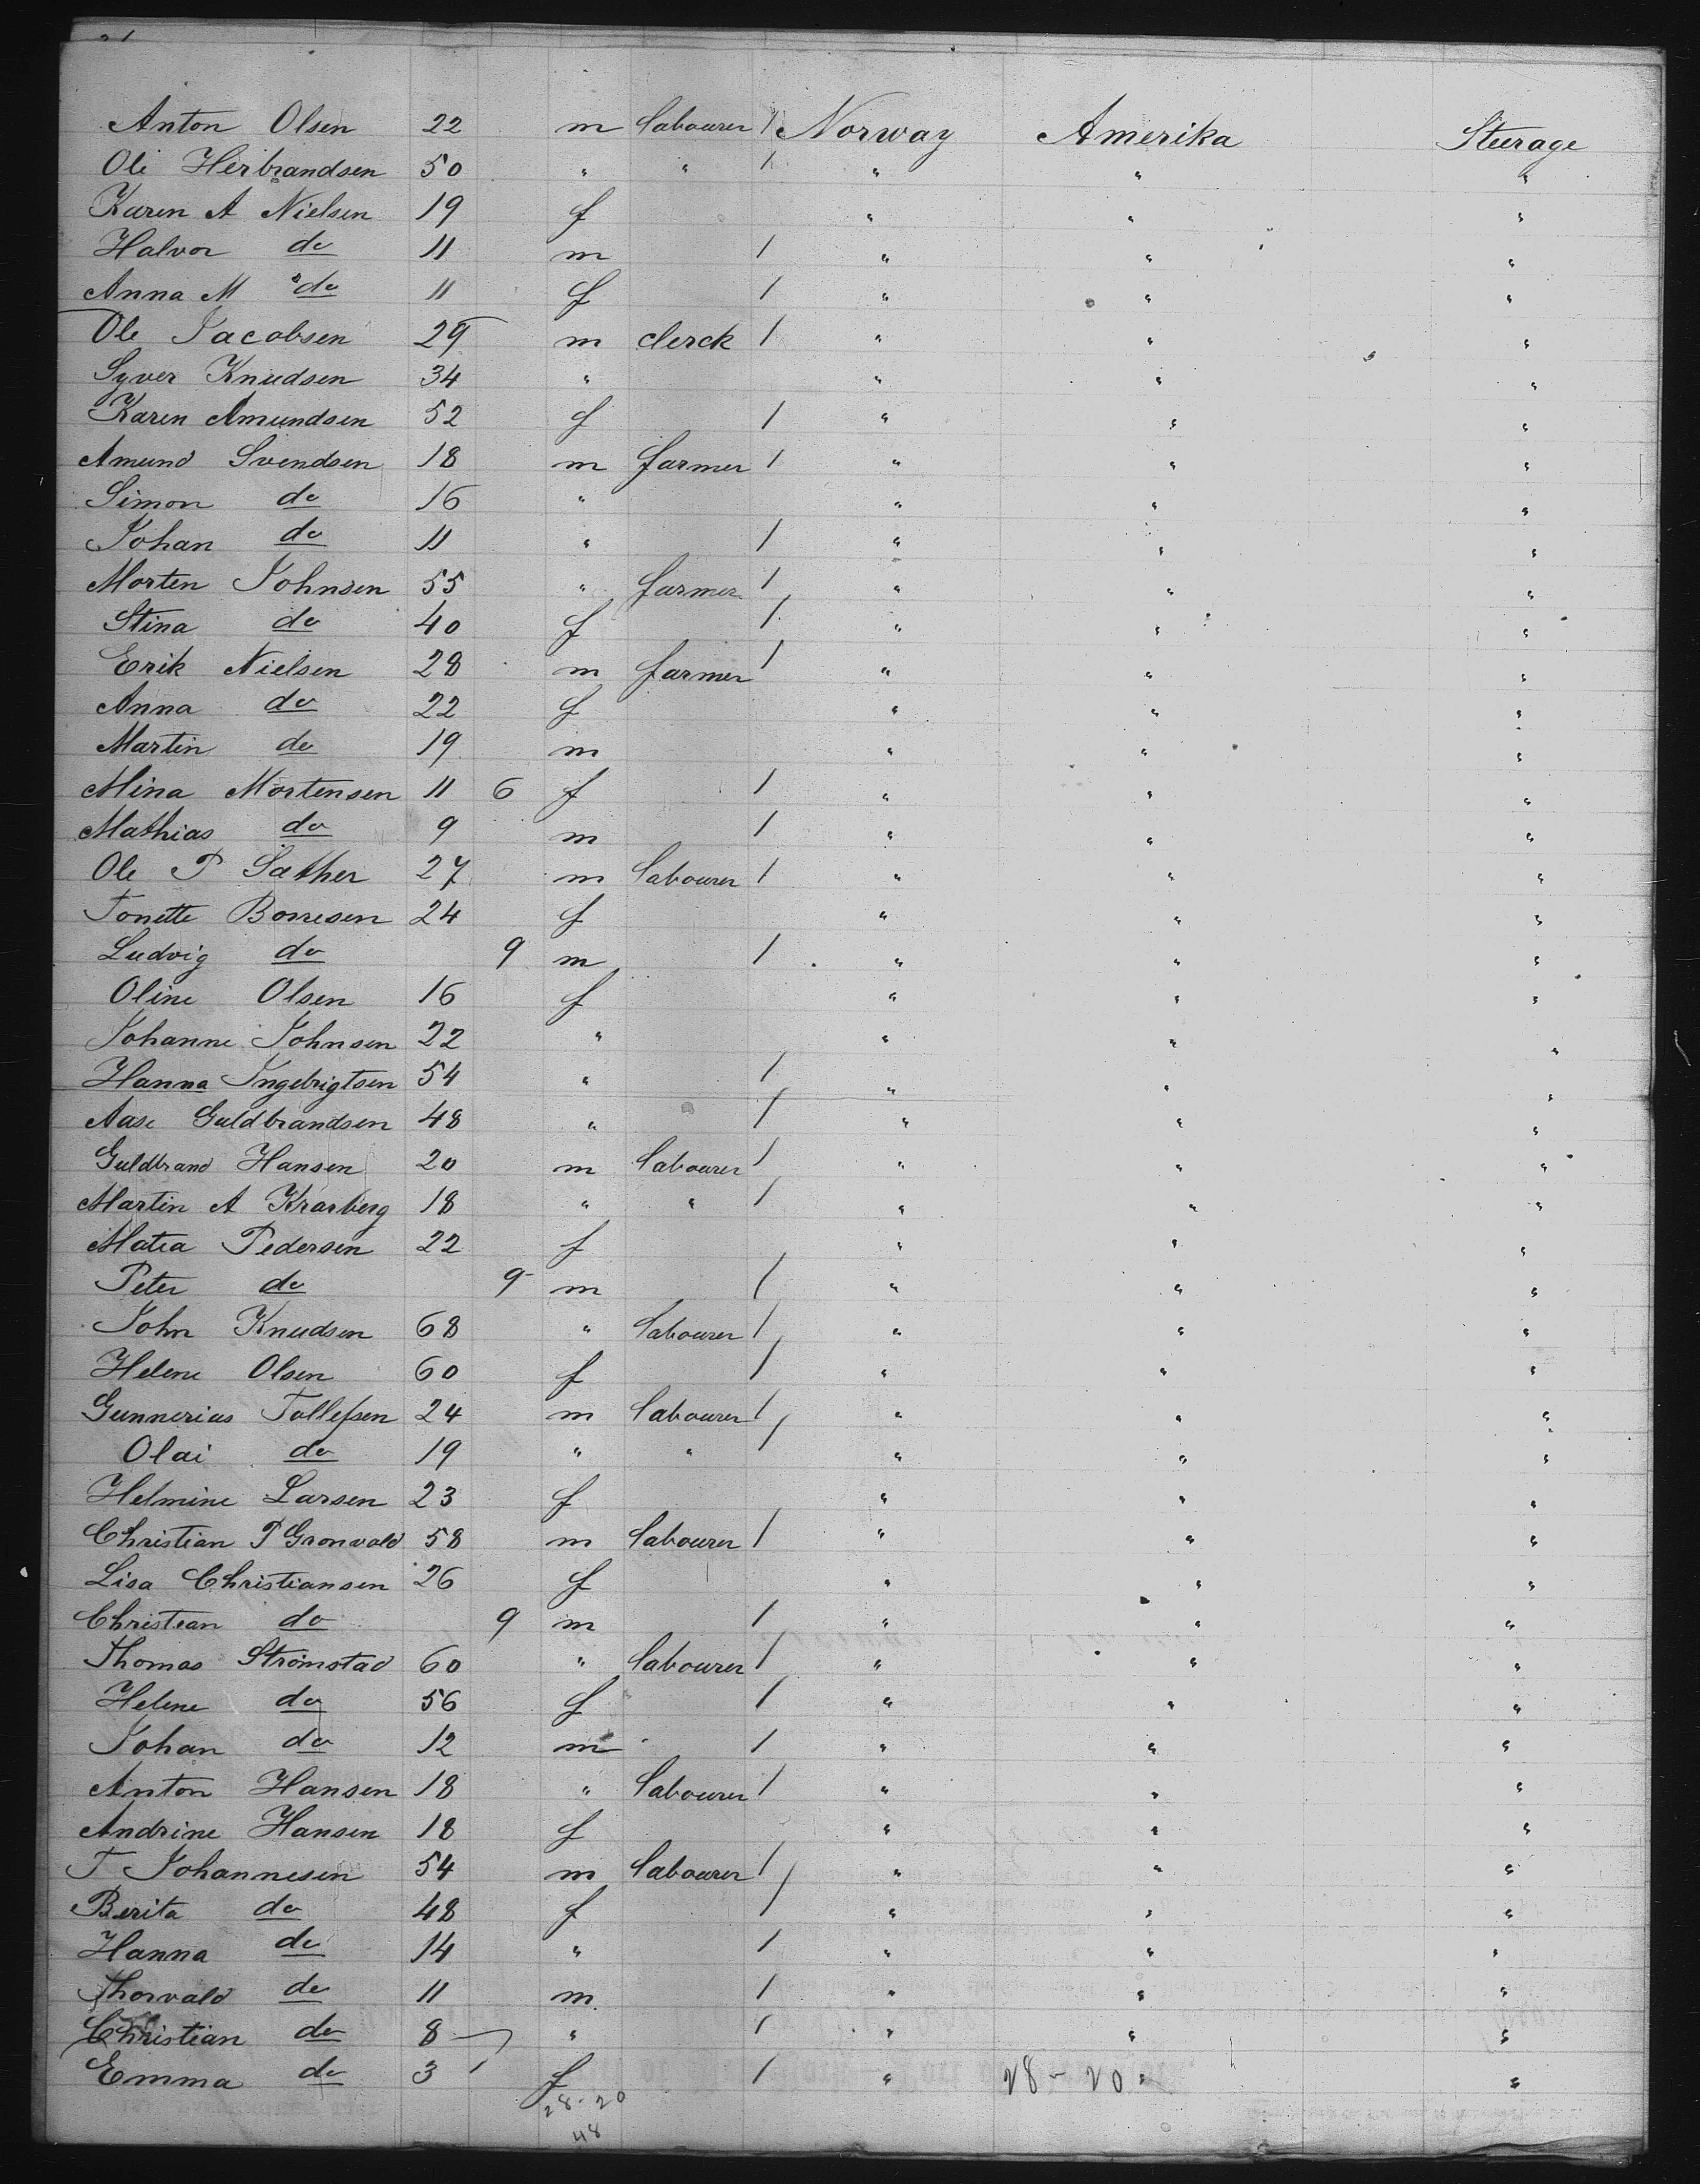 Anton Olsen 22 m labourer 1 Norway Amerika Steerage
Ole Herbrandsen 50 " " 1 " " "
Karen A Nielsen 19 f " " "
Halvor do 11 m 1 " " "
Anna M do 11 f 1 " " "
Ole Jacobsen 29 m clerck 1 " " "
Syver Knudsen 34 " " " "
Karen Amundsen 52 f 1 " " "
Amund Svendsen 18 m farmer 1 " " "
Simon do 16 " " " "
Johan do 11 " 1 " " "
Morten Johnsen 55 " farmer 1 " " "
Stina do 40 f 1 " " "
Erik Nielsen 28 m farmer 1 " " "
Anna do 22 f " " "
Martin do 19 m " " "
Mina Mortensen 11 6 f 1 " " "
Mathias do 9 m 1 " " "
Ole P Sather 27 m labourer 1 " " "
Tonette Borresen 24 f " " "
Ludvig do 9 m 1 " " "
Oline Olsen 16 f " " "
Johanne Johnsen 22 " " " "
Hanna Ingebrigtsen 54 " 1 " " "
Aase Guldbrandsen 48 " 1 " " "
Guldbrand Hansen 20 m labourer 1 " " "
Martin A Krarberg 18 " " 1 " " "
Matea Pedersen 22 f " " "
Peter do 9 m 1 " " "
John Knudsen 68 " labourer 1 " " "
Helene Olsen 60 f 1 " " "
Gunnerius Tollefsen 24 m labourer 1 " " "
Olai do 19 " " 1 " " "
Helmine Larsen 23 f " " "
Christian P Gronvald 58 m labourer 1 " " "
Lisa Christiansen 26 f " " "
Christian do 9 m 1 " " "
Thomas Strömstad 60 " labourer 1 " " "
Helene do 56 f 1 " " "
Johan do 12 m 1 " " "
Anton Hansen 18 " labourer 1 " " "
Andrine Hansen 18 f " " "
T Johannesen 54 m labourer 1 " " "
Berita do 48 f 1 " " "
Hanna do 14 " 1 " " "
Thorvald do 11 m 1 " " "
Christian do 8 " 1 " " "
Emma do 3 f 1 " 28-20 " "
28-20
48